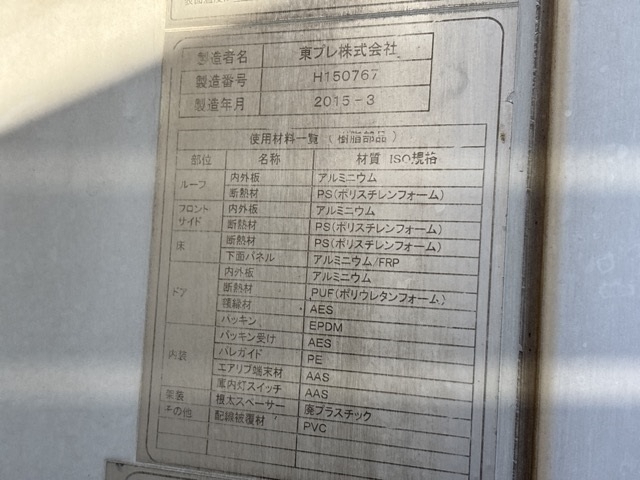 製造者名 東プレ株式会社
製造番号 H150767
製造年月 2015-3
使用材料一覧（樹脂部品）
部位 名称 材質 ISO規格
ルーフ 内外板 アルミニウム
断熱材 PS(ポリスチレンフォーム)
フロント サイド 内外板 アルミニウム
断熱材 PS(ポリスチレンフォーム)
床 断熱材 PS(ポリスチレンフォーム)
下面パネル アルミニウム/FRP
ドア 内外板 アルミニウム
断熱材 PUF(ポリウレタンフォーム)
額縁材 AES
パッキン EPDM
内装 パッキン受け AES
バレガイド PE
エアリブ端末材 AAS
庫内灯スイッチ AAS
架装 根太スペーサー 廃プラスチック
その他 配線被覆材 PVC